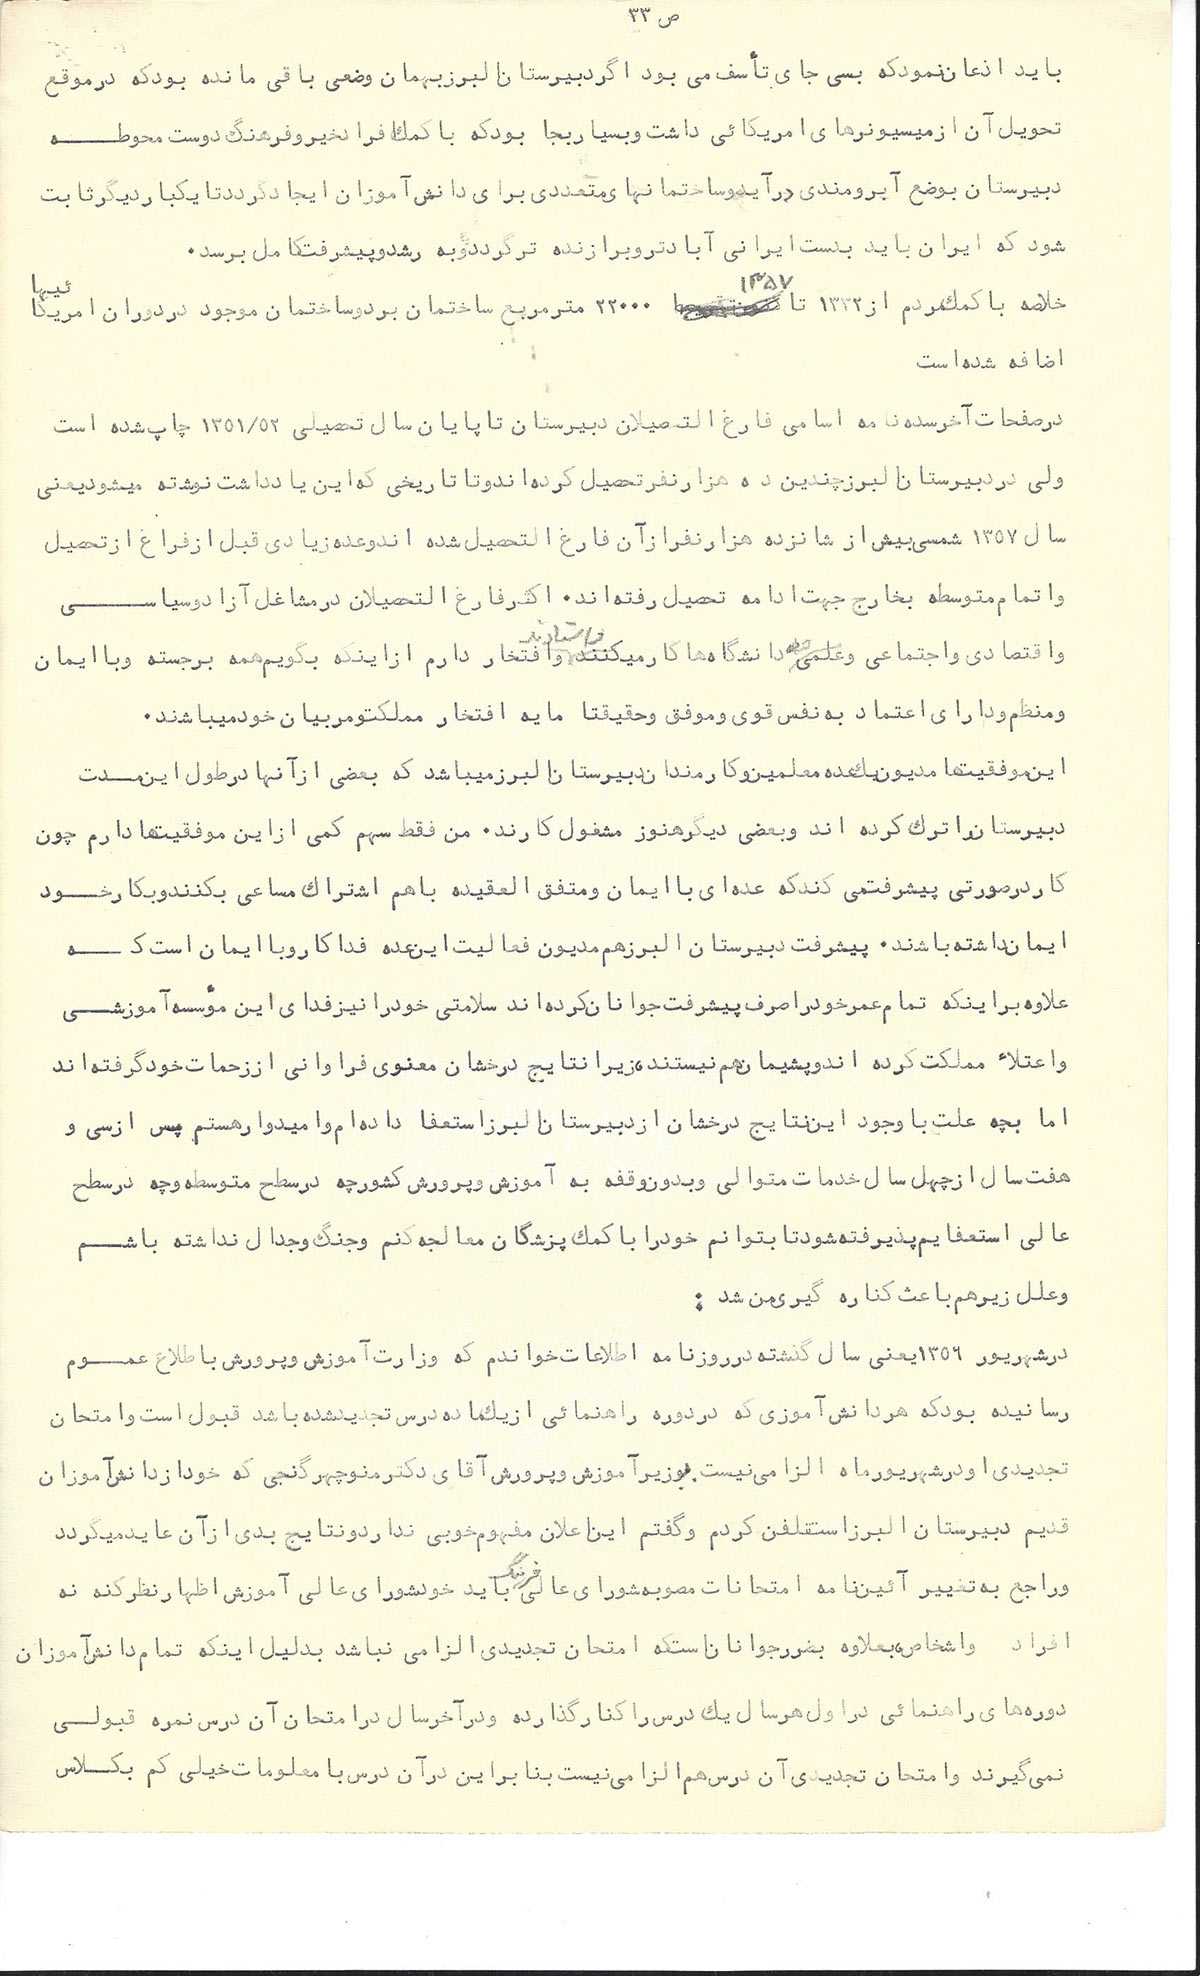 ص ۳۳
باید اذعان نمود که بسی جای تأسف می بود اگر دبیرستان البرز بهمان وضعی باقی مانده بود که در موقع
تحویل آن از میسیونرهای امریکائی داشت و بسیار بجا بود که با کمک افراد خیر و فرهنگ دوست محوطه
دبیرستان بوضع آبرومندی درآید و ساختمانهای متعددی برای دانش آموزان ایجاد گردد تا یکبار دیگر ثابت
شود که ایران باید بدست ایرانی آبادتر و برازنده تر گردد و به رشد و پیشرفت کامل برسد.
خلاصه با کمک مردم از ۱۳۳۲ تا ۱۳۵۷ ۲۲۰۰۰ متر مربع ساختمان بر دو ساختمان موجود در دوران امریکائیها
اضافه شده است
در صفحات آخر سده نامه اسامی فارغ التحصیلان دبیرستان تا پایان سال تحصیلی ۱۳۵۱/۵۲ چاپ شده است
ولی در دبیرستان البرز چندین ده هزار نفر تحصیل کرده اند و تا تاریخی که این یادداشت نوشته میشود یعنی
سال ۱۳۵۷ شمسی بیش از شانزده هزار نفر از آن فارغ التحصیل شده اند و عده زیادی قبل از فراغ از تحصیل
و اتمام متوسطه بخارج جهت ادامه تحصیل رفته اند. اکثر فارغ التحصیلان در مشاغل آزاد و سیاسی
و اقتصادی و اجتماعی و علمی دانشگاه ها کار میکنند و افتخار دارم از اینکه بگویم همه برجسته و با ایمان
و منظم و دارای اعتماد به نفس قوی و موفق و حقیقتا مایه افتخار مملکت و مربیان خود میباشند.
این موفقیت ها مدیون یک عده معلمین و کارمندان دبیرستان البرز میباشد که بعضی از آنها در طول این مدت
دبیرستان را ترک کرده اند و بعضی دیگر هنوز مشغول کارند. من فقط سهم کمی از این موفقیت ها دارم چون
کار در صورتی پیشرفت می کند که عده ای با ایمان و متفق العقیده با هم اشتراک مساعی بکنند و بکار خود
ایمان داشته باشند. پیشرفت دبیرستان البرز هم مدیون فعالیت این عده فداکار و با ایمان است که
علاوه بر اینکه تمام عمر خود را صرف پیشرفت جوانان کرده اند سلامتی خود را نیز فدای این مؤسسه آموزشی
و اعتلاء مملکت کرده اند و پشیمان هم نیستند، زیرا نتایج درخشان معنوی فراوانی از زحمات خود گرفته اند
اما بچه علت با وجود این نتایج درخشان از دبیرستان البرز استعفا داده ام و امیدوار هستم پس از سی و
هفت سال از چهل سال خدمات متوالی و بدون وقفه به آموزش و پرورش کشور چه در سطح متوسطه و چه در سطح
عالی استعفایم پذیرفته شود تا بتوانم خود را با کمک پزشگان معالجه کنم و جنگ و جدال نداشته باشم
و علل زیر هم باعث کناره گیری من شد :
در شهریور ۱۳۵۶ یعنی سال گذشته در روزنامه اطلاعات خواندم که وزارت آموزش و پرورش باطلاع عموم
رسانیده بود که هر دانش آموزی که در دوره راهنمائی از یک ماده درس تجدید شده باشد قبول است و امتحان
تجدیدی او در شهریور ماه الزامی نیست. بوزیر آموزش و پرورش آقای دکتر منوچهر گنجی که خود از دانش آموزان
قدیم دبیرستان البرز است تلفن کردم و گفتم این اعلان مفهوم خوبی ندارد و نتایج بدی از آن عاید میگردد
و راجع به تغییر آئین نامه امتحانات مصوبه شورای عالی فرهنگ باید خود شورای عالی آموزش اظهار نظر کنه نه
افراد و اشخاص، بعلاوه بضرر جوانان است که امتحان تجدیدی الزامی نباشد بدلیل اینکه تمام دانش آموزان
دوره های راهنمائی در اول هر سال یک درس را کنار گذارده و در آخر سال در امتحان آن درس نمره قبولی
نمی گیرند و امتحان تجدیدی آن درس هم الزامی نیست بنا براین در آن درس با معلومات خیلی کم بکلاس